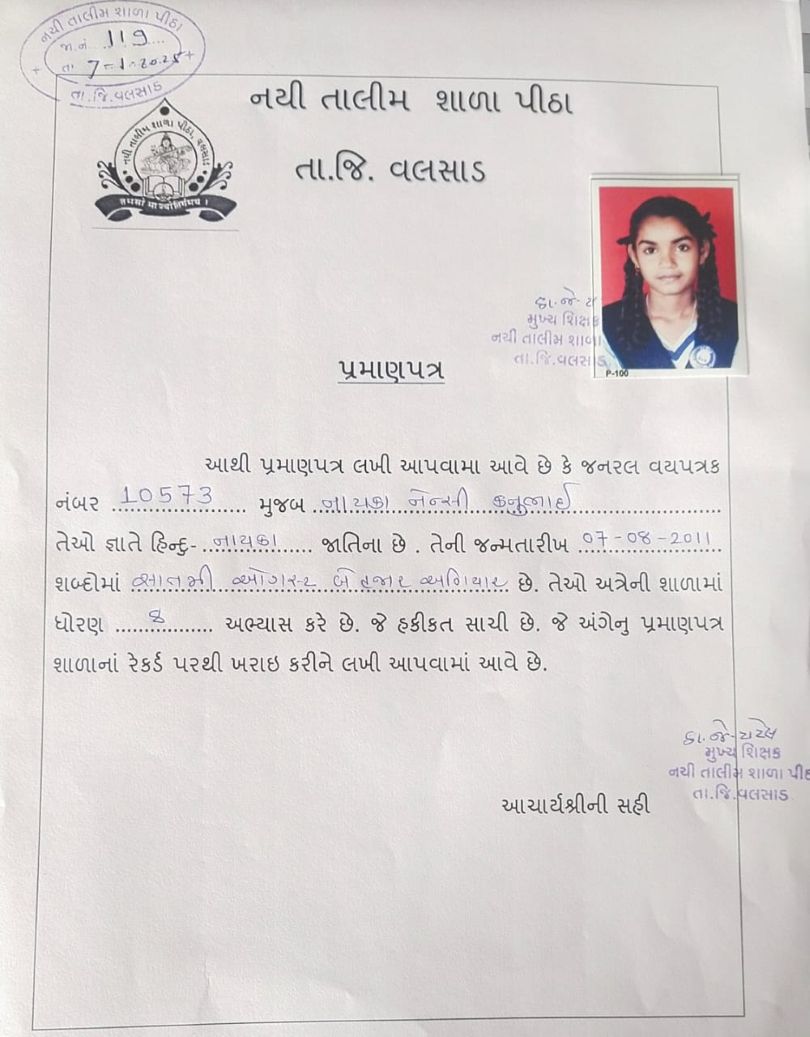 નચી તાલીમ શાળા પીઠા
જા.નં. 119
તા 7-1-2025
તા.જિ.વલસાડ
નચી તાલીમ શાળા પીઠા
તા.જિ. વલસાડ
નચી તાલીમ શાળા પીઠા, વલસાડ
તમસો મા જ્યોતિર્ગમય ।
કા.જે.
મુખ્ય શિક્ષક
નચી તાલીમ શાળા
તા.જિ.વલસાડ
P-100
પ્રમાણપત્ર
આથી પ્રમાણપત્ર લખી આપવામા આવે છે કે જનરલ વયપત્રક
નંબર 10573 મુજબ નાયકા નેન્સી કનુભાઈ
તેઓ જ્ઞાતે હિન્દુ- નાયકા જાતિના છે . તેની જન્મતારીખ 07-08-2011
શબ્દોમાં સાતમી ઓગસ્ટ બે હજાર અગિયાર છે. તેઓ અત્રેની શાળામાં
ધોરણ 8 અભ્યાસ કરે છે. જે હકીકત સાચી છે. જે અંગેનુ પ્રમાણપત્ર
શાળાનાં રેકર્ડ પરથી ખરાઇ કરીને લખી આપવામાં આવે છે.
કા.જે.પટેલ
મુખ્ય શિક્ષક
નચી તાલીમ શાળા પીઠા
તા.જિ.વલસાડ
આચાર્યશ્રીની સહી